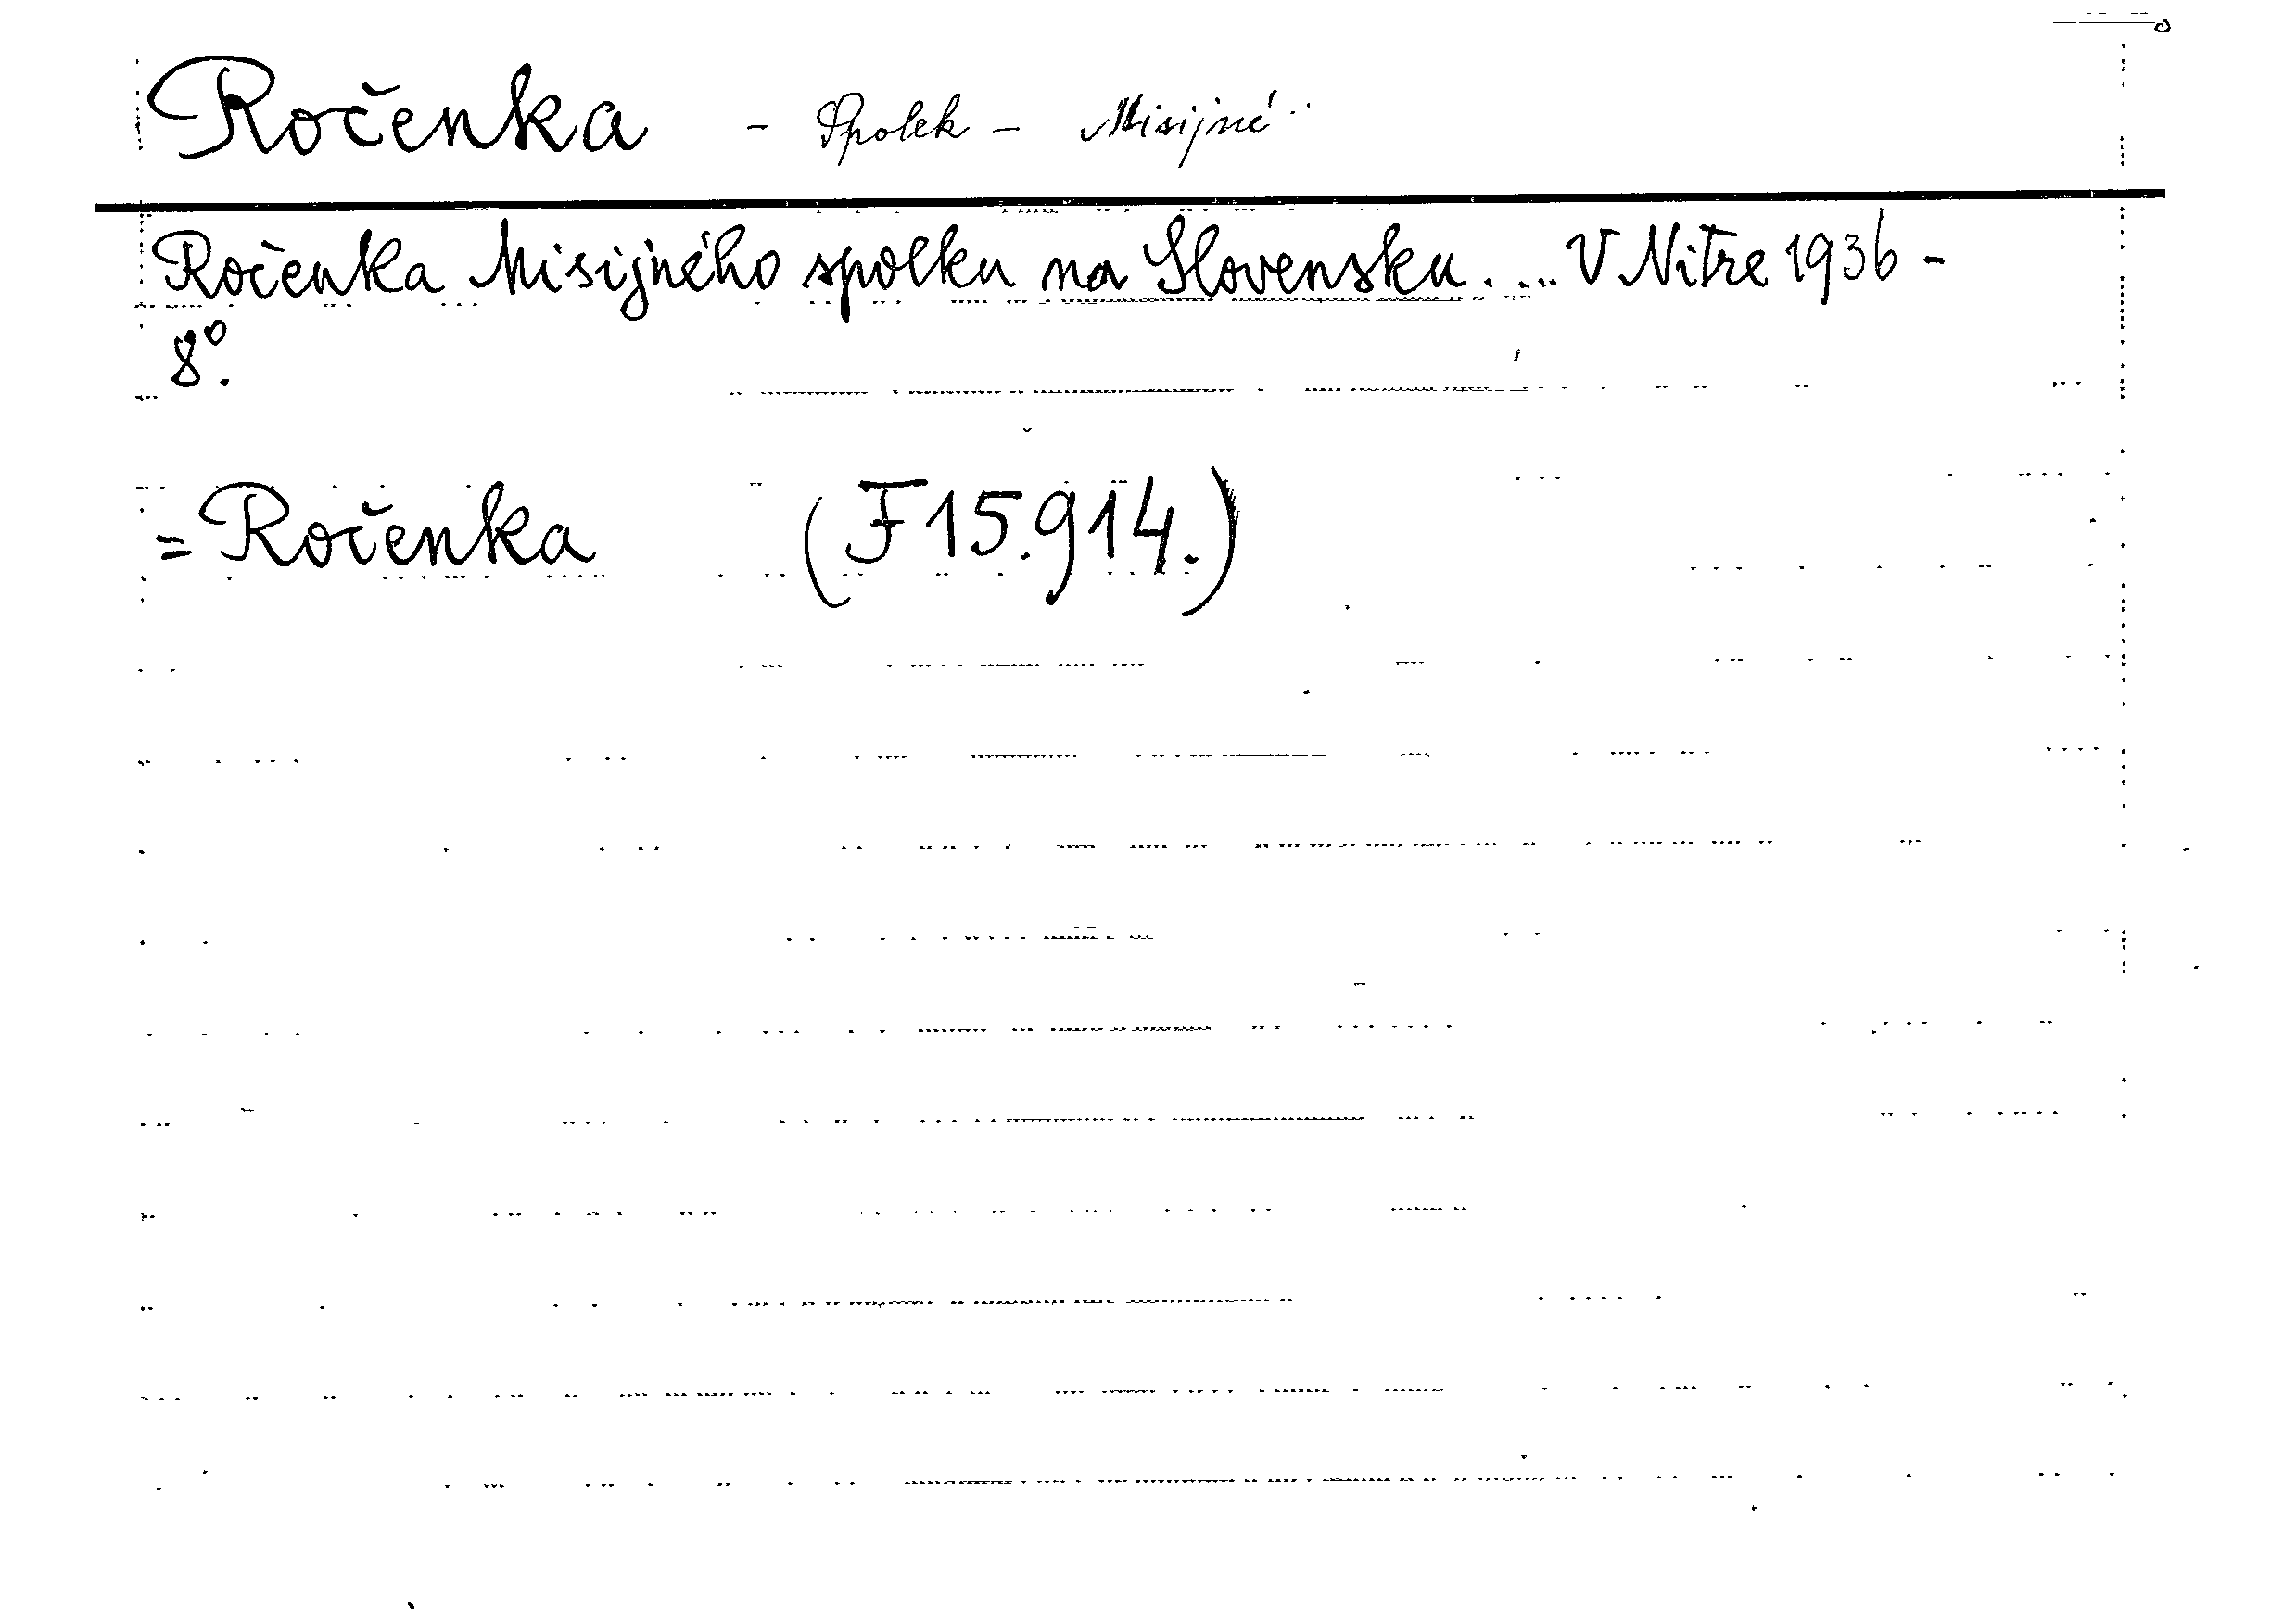 Ročenka - Spolek - Misijné
Ročenka Misijného spolku na Slovensku. ... V Nitre 1936 -
8°.
= Ročenka (F 15.914.)